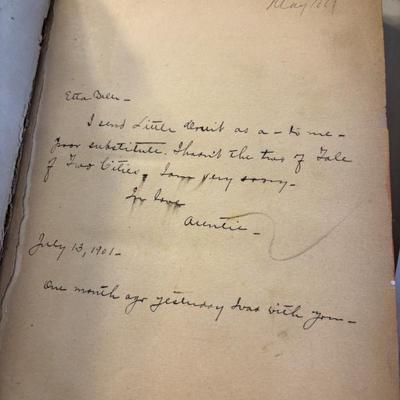 Etta Dear -
I send Little Dorrit as a - to me -
poor substitute. I hadn't the two of Tale
of Two Cities, I am very sorry -
In love
Auntie -
July 13, 1901 -
One month ago yesterday I was with you -